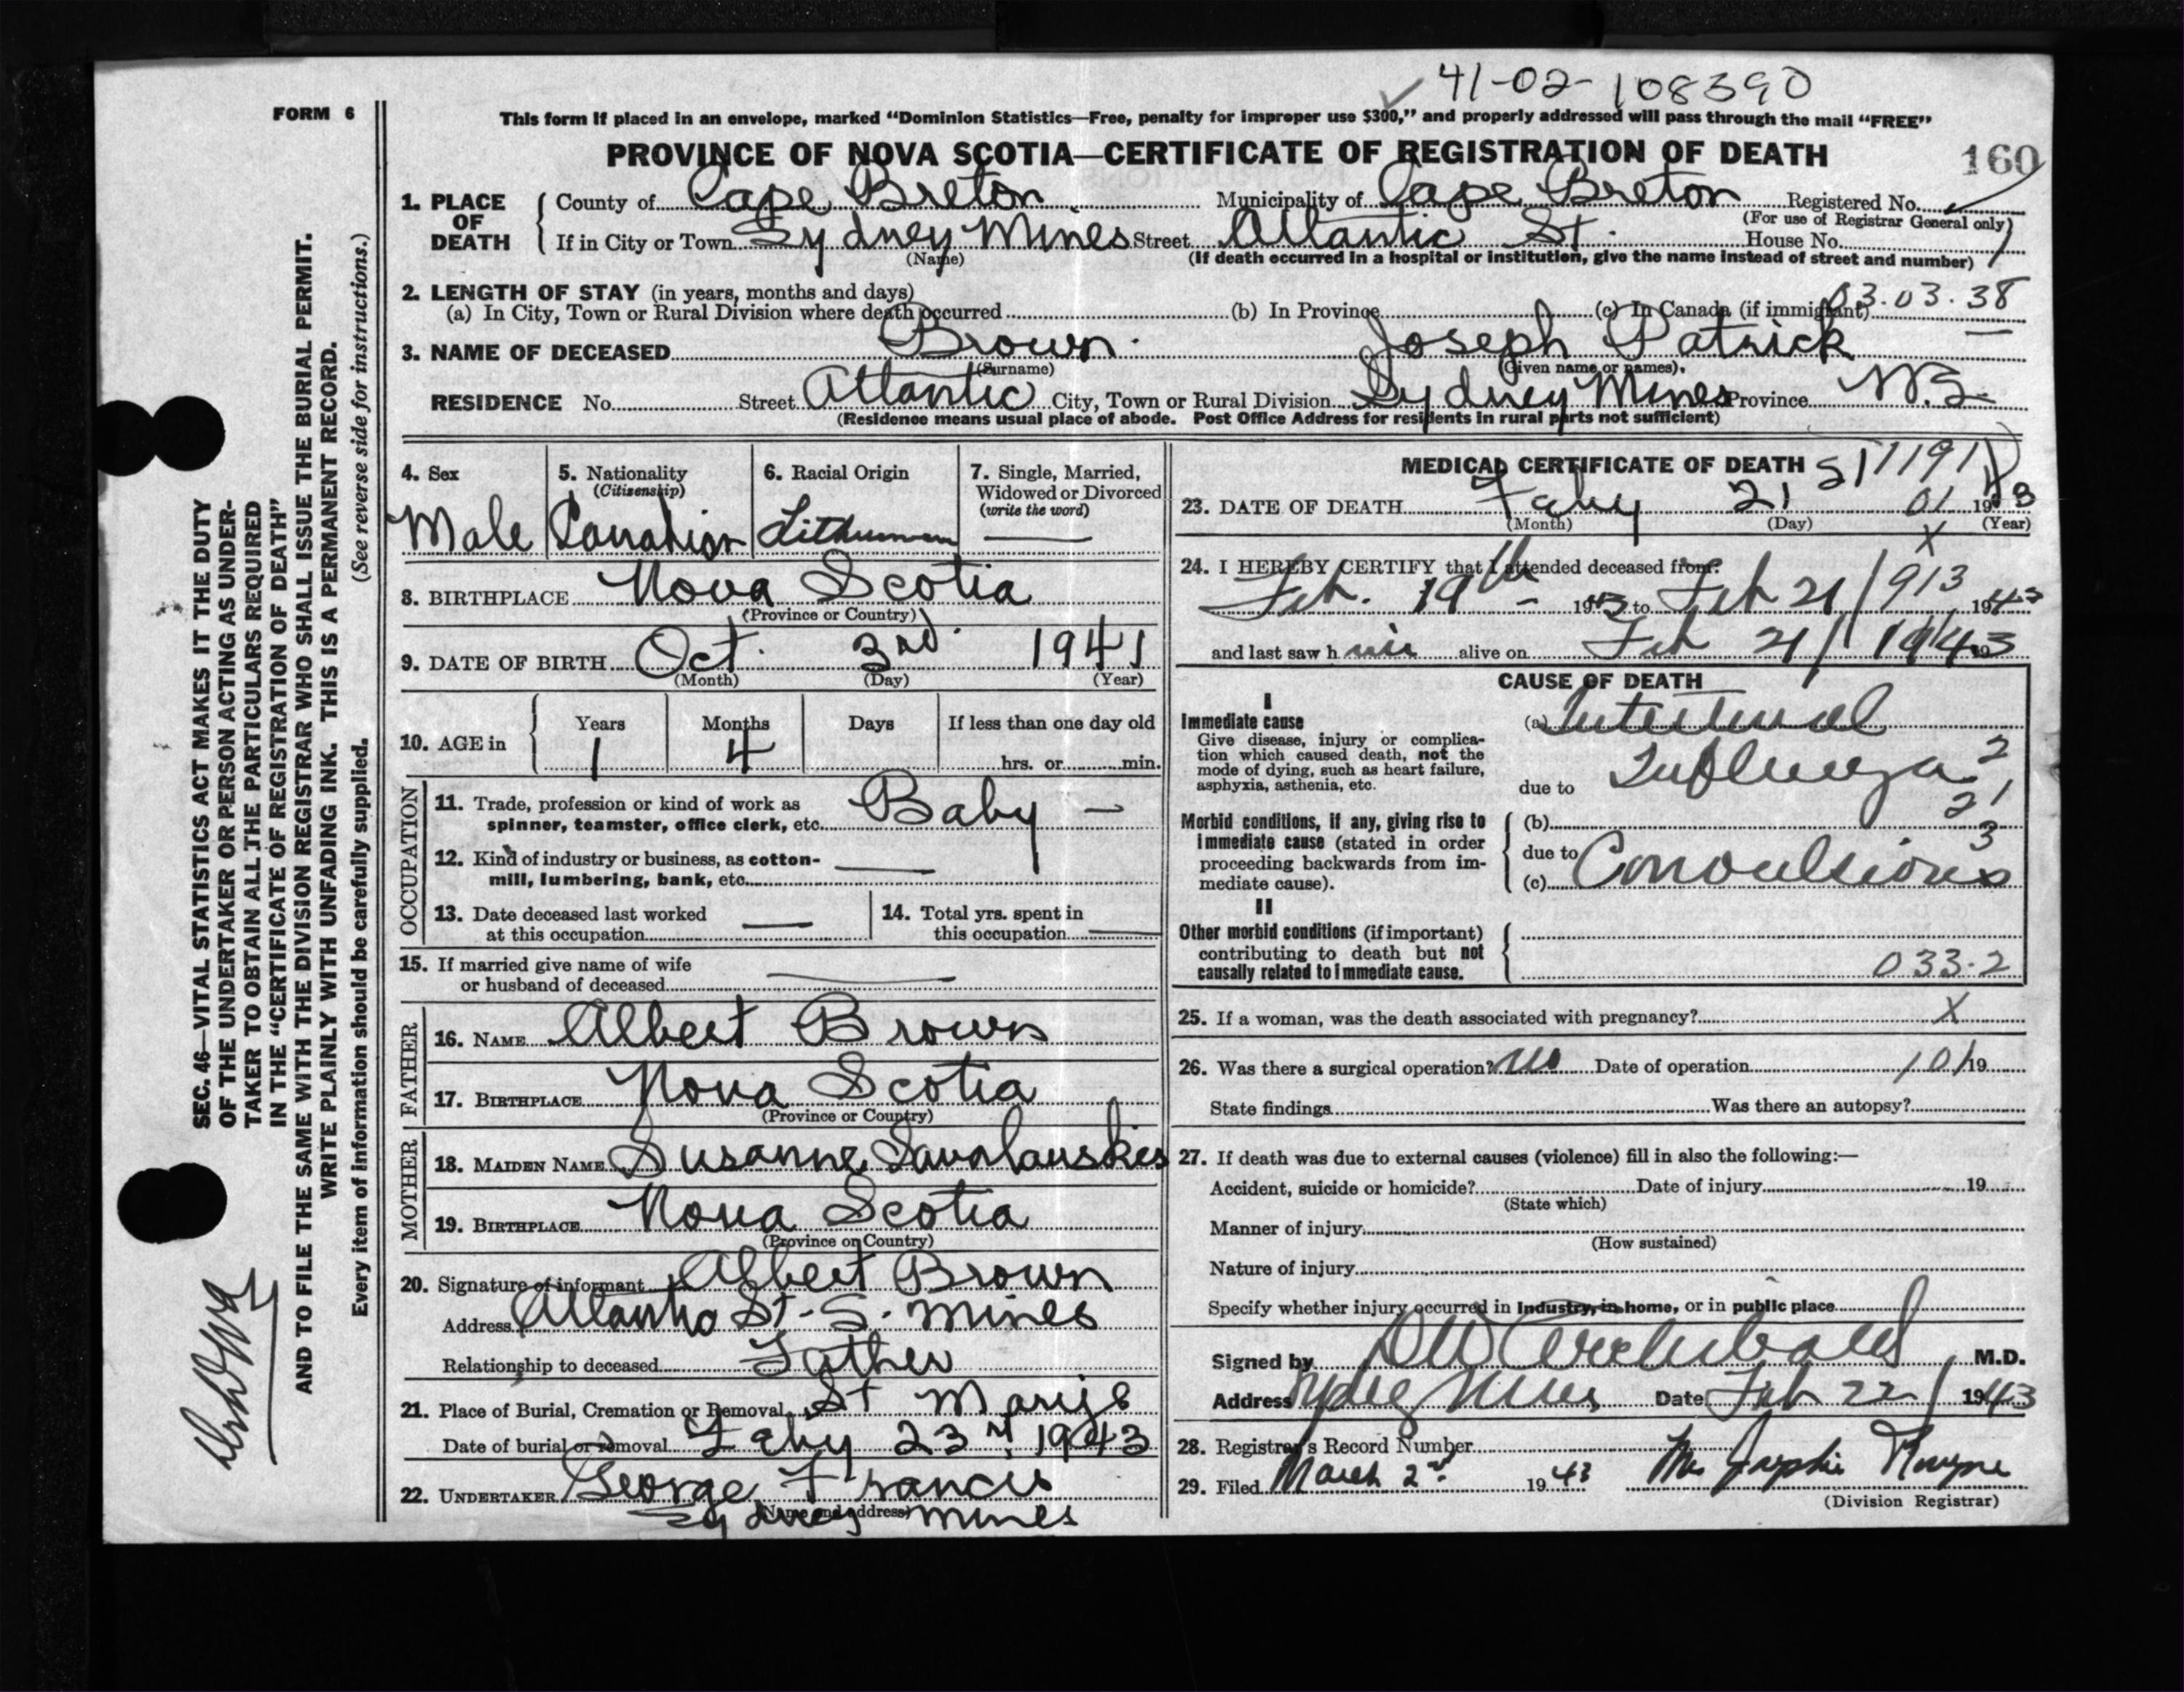 41-02-108390
FORM 6
This form if placed in an envelope, marked "Dominion Statistics—Free, penalty for improper use $300," and properly addressed will pass through the mail "FREE"
PROVINCE OF NOVA SCOTIA—CERTIFICATE OF REGISTRATION OF DEATH
160
1. PLACE OF DEATH
County of Cape Breton Municipality of Cape Breton Registered No.
(For use of Registrar General only)
If in City or Town Sydney Mines Street Atlantic St. House No.
(Name) (If death occurred in a hospital or institution, give the name instead of street and number)
2. LENGTH OF STAY (in years, months and days) 03.03.38
(a) In City, Town or Rural Division where death occurred (b) In Province (c) In Canada (if immigrant)
3. NAME OF DECEASED Brown Joseph Patrick
(Surname) (Given name or names)
RESIDENCE No. Street Atlantic City, Town or Rural Division Sydney Mines Province N.S.
(Residence means usual place of abode. Post Office Address for residents in rural parts not sufficient)
4. Sex
Male
5. Nationality
(Citizenship)
Canadian
6. Racial Origin
7. Single, Married,
Widowed or Divorced
(write the word)
8. BIRTHPLACE Nova Scotia
(Province or Country)
9. DATE OF BIRTH Oct. 3rd 1941
(Month) (Day) (Year)
10. AGE in
Years Months Days If less than one day old
1 4 hrs. or min.
OCCUPATION
11. Trade, profession or kind of work as
spinner, teamster, office clerk, etc. Baby —
12. Kind of industry or business, as cotton-
mill, lumbering, bank, etc.
13. Date deceased last worked
at this occupation
14. Total yrs. spent in
this occupation
15. If married give name of wife
or husband of deceased
FATHER
16. NAME Albert Brown
17. BIRTHPLACE Nova Scotia
(Province or Country)
MOTHER
18. MAIDEN NAME Susanne
19. BIRTHPLACE Nova Scotia
(Province or Country)
20. Signature of informant Albert Brown
Address Atlantic St. S. Mines
Relationship to deceased Father
21. Place of Burial, Cremation or Removal St Marys
Date of burial or removal Feby 23rd 1943
22. UNDERTAKER George Francis
(Name and address)
Sydney Mines
MEDICAL CERTIFICATE OF DEATH
23. DATE OF DEATH Feby 21 01 1943
(Month) (Day) (Year)
24. I HEREBY CERTIFY that I attended deceased from:
Feb. 19th - 1943 to Feb 21/ 1943
and last saw him alive on Feb 21/ 1943
CAUSE OF DEATH
I
Immediate cause
Give disease, injury or complica-
tion which caused death, not the
mode of dying, such as heart failure,
asphyxia, asthenia, etc.
(a) Intestinal
due to Influenza
Morbid conditions, if any, giving rise to
immediate cause (stated in order
proceeding backwards from im-
mediate cause).
(b)
due to
(c) Convulsions
II
Other morbid conditions (if important)
contributing to death but not
causally related to immediate cause.
033.2
25. If a woman, was the death associated with pregnancy? X
26. Was there a surgical operation? no Date of operation 19
State findings Was there an autopsy?
27. If death was due to external causes (violence) fill in also the following:—
Accident, suicide or homicide? Date of injury 19
(State which)
Manner of injury
(How sustained)
Nature of injury
Specify whether injury occurred in Industry, in home, or in public place
Signed by Archibald M.D.
Address Sydney Mines Date Feb 22/ 1943
28. Registrar's Record Number
29. Filed March 2nd 1943
(Division Registrar)
SEC. 46—VITAL STATISTICS ACT MAKES IT THE DUTY
OF THE UNDERTAKER OR PERSON ACTING AS UNDER-
TAKER TO OBTAIN ALL THE PARTICULARS REQUIRED
IN THE "CERTIFICATE OF REGISTRATION OF DEATH"
AND TO FILE THE SAME WITH THE DIVISION REGISTRAR WHO SHALL ISSUE THE BURIAL PERMIT.
WRITE PLAINLY WITH UNFADING INK. THIS IS A PERMANENT RECORD.
Every item of information should be carefully supplied. (See reverse side for instructions.)